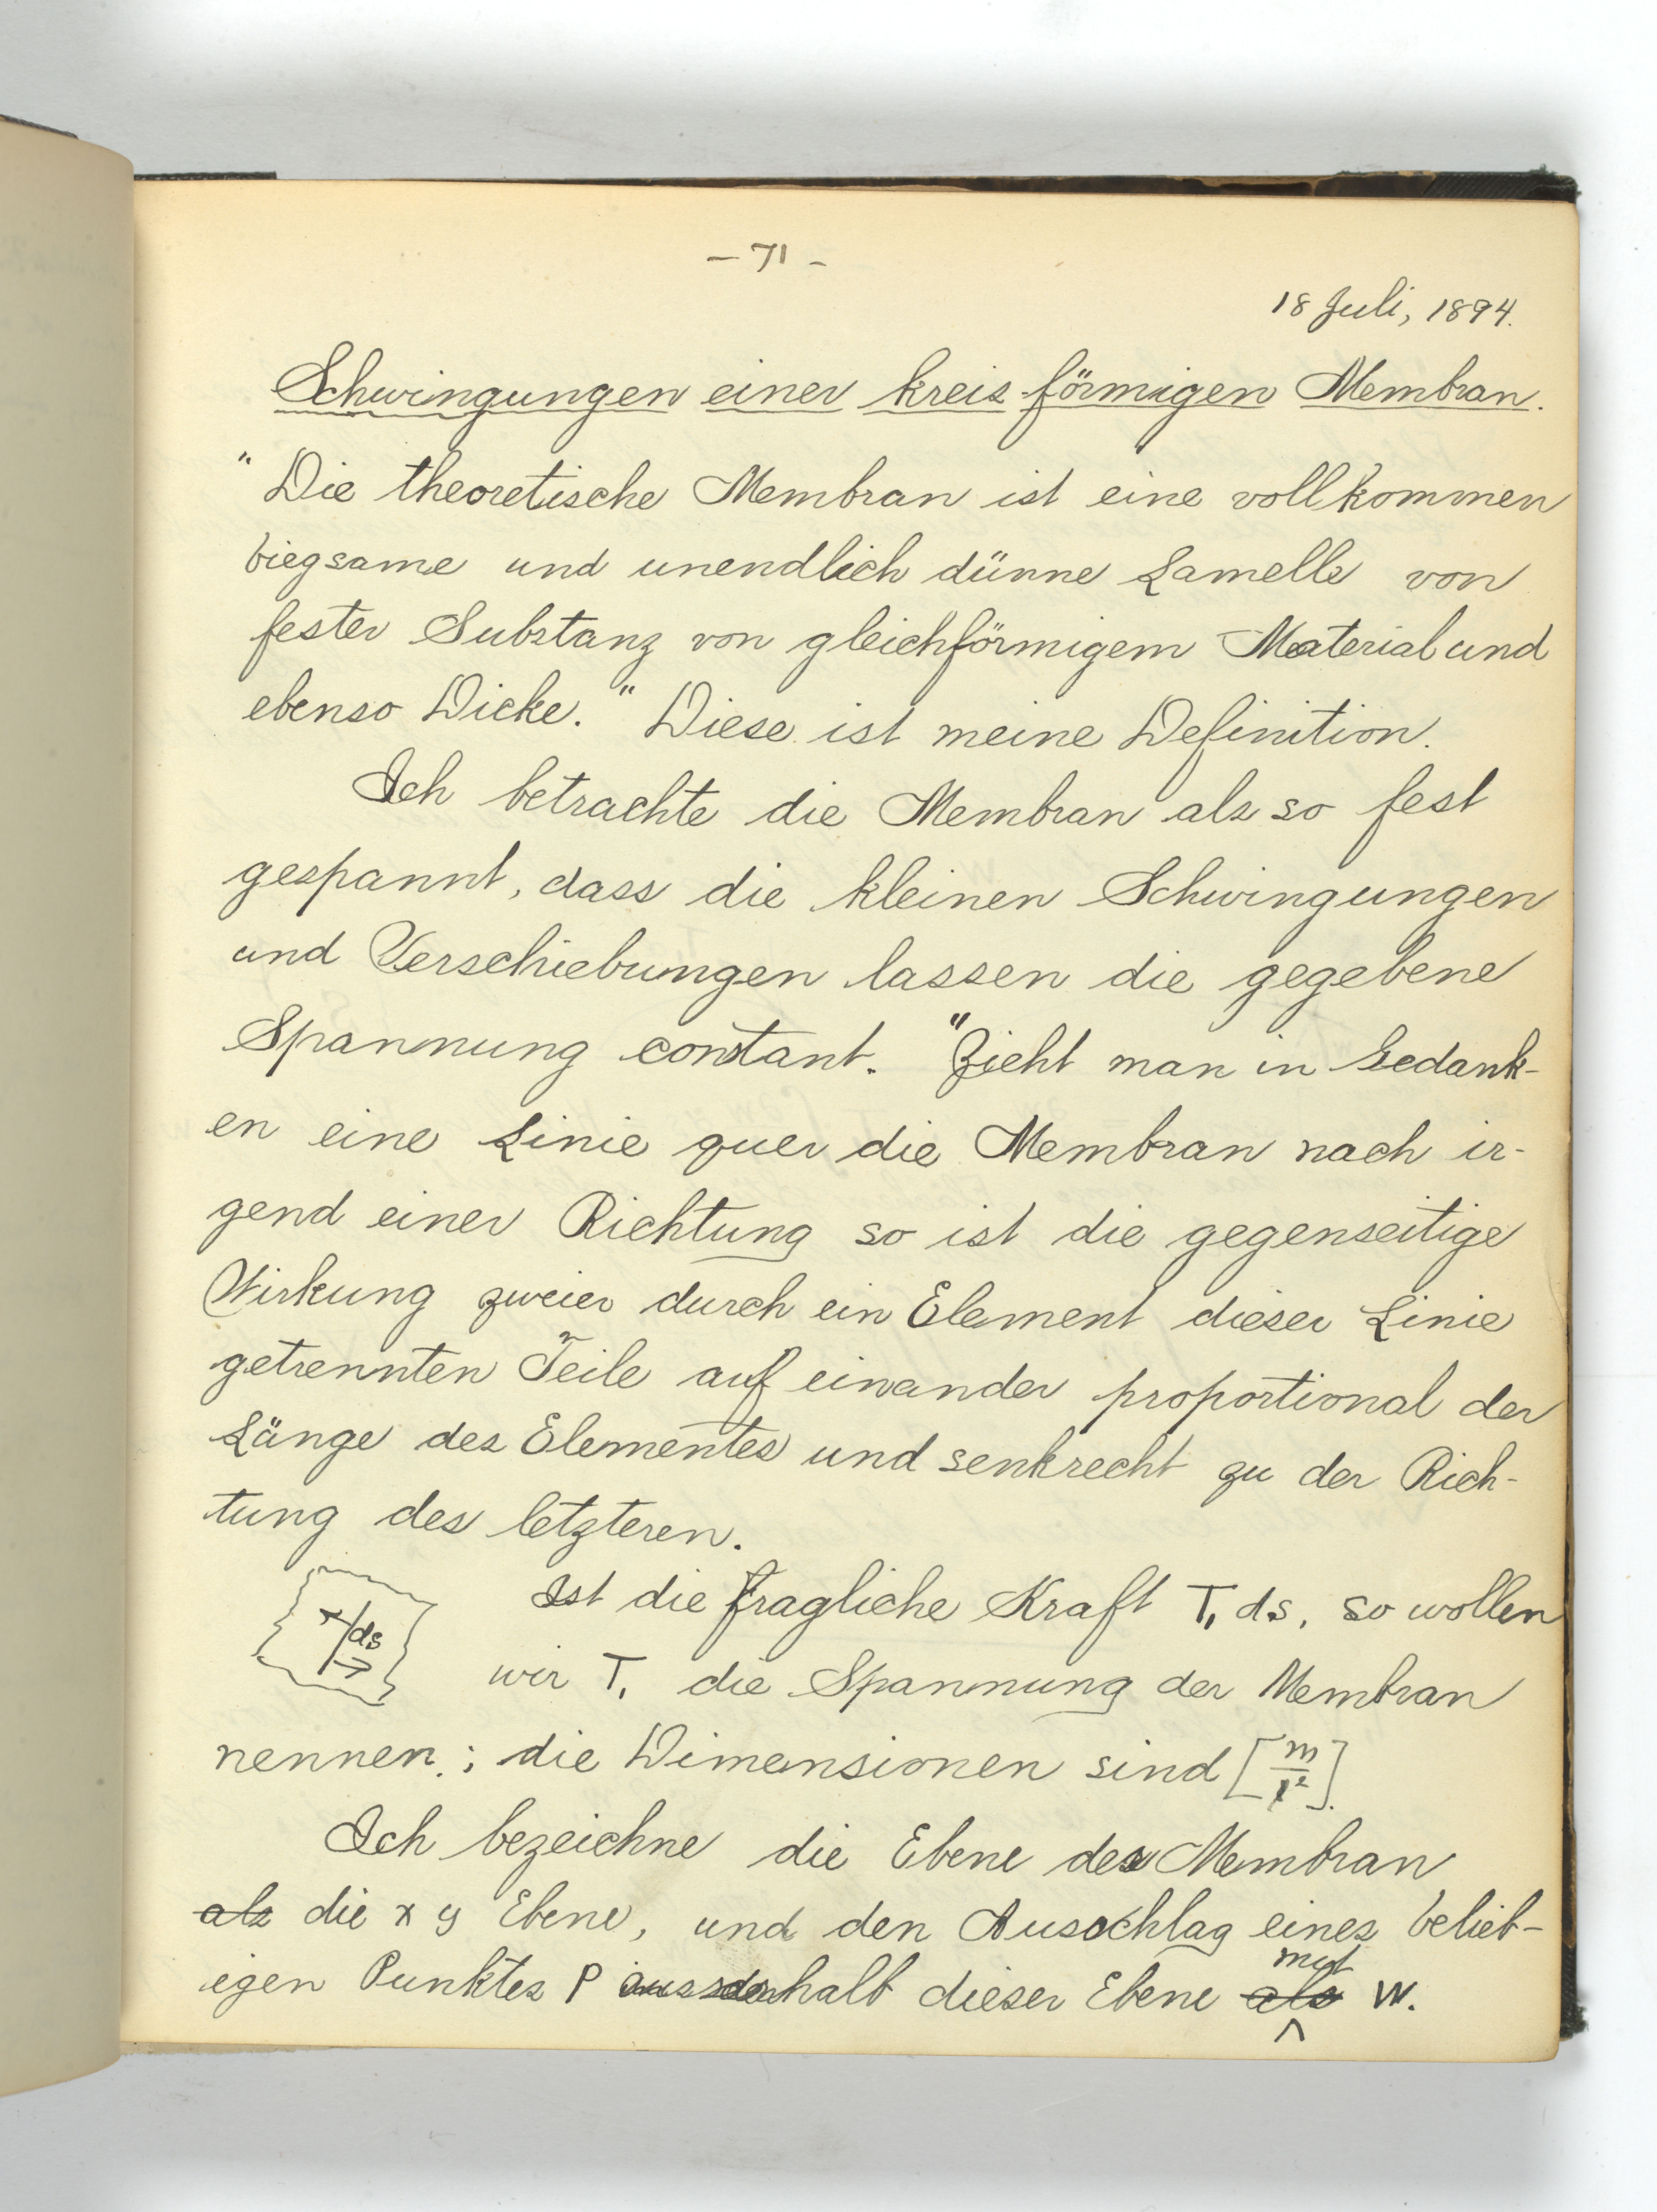 – 71 –
18 Juli, 1894.
Schwingungen einer kreisförmigen Membran.
"Die theoretische Membran ist eine vollkommen
biegsame und unendlich dünne Lamelle von
fester Substanz von gleichförmigem Material und
ebenso Dicke." Diese ist meine Definition.
Ich betrachte die Membran als so fest
gespannt, dass die kleinen Schwingungen
und Verschiebungen lassen die gegebene
Spannung constant. "Zieht man in Gedank-
en eine Linie quer die Membran nach ir-
gend einer Richtung so ist die gegenseitige
Wirkung zweier durch ein Element dieser Linie
getrennten Teile auf einander proportional der
Länge des Elementes und senkrecht zu der Rich-
tung des letzteren.
Ist die fragliche Kraft T₁ ds, so wollen
ds
wir T₁ die Spannung der Membran
nennen; die Dimensionen sind [m/t²].
Ich bezeichne die Ebene der Membran
als die x y Ebene, und den Ausschlag eines belieb-
igen Punktes P ausserhalb dieser Ebene als mit w.